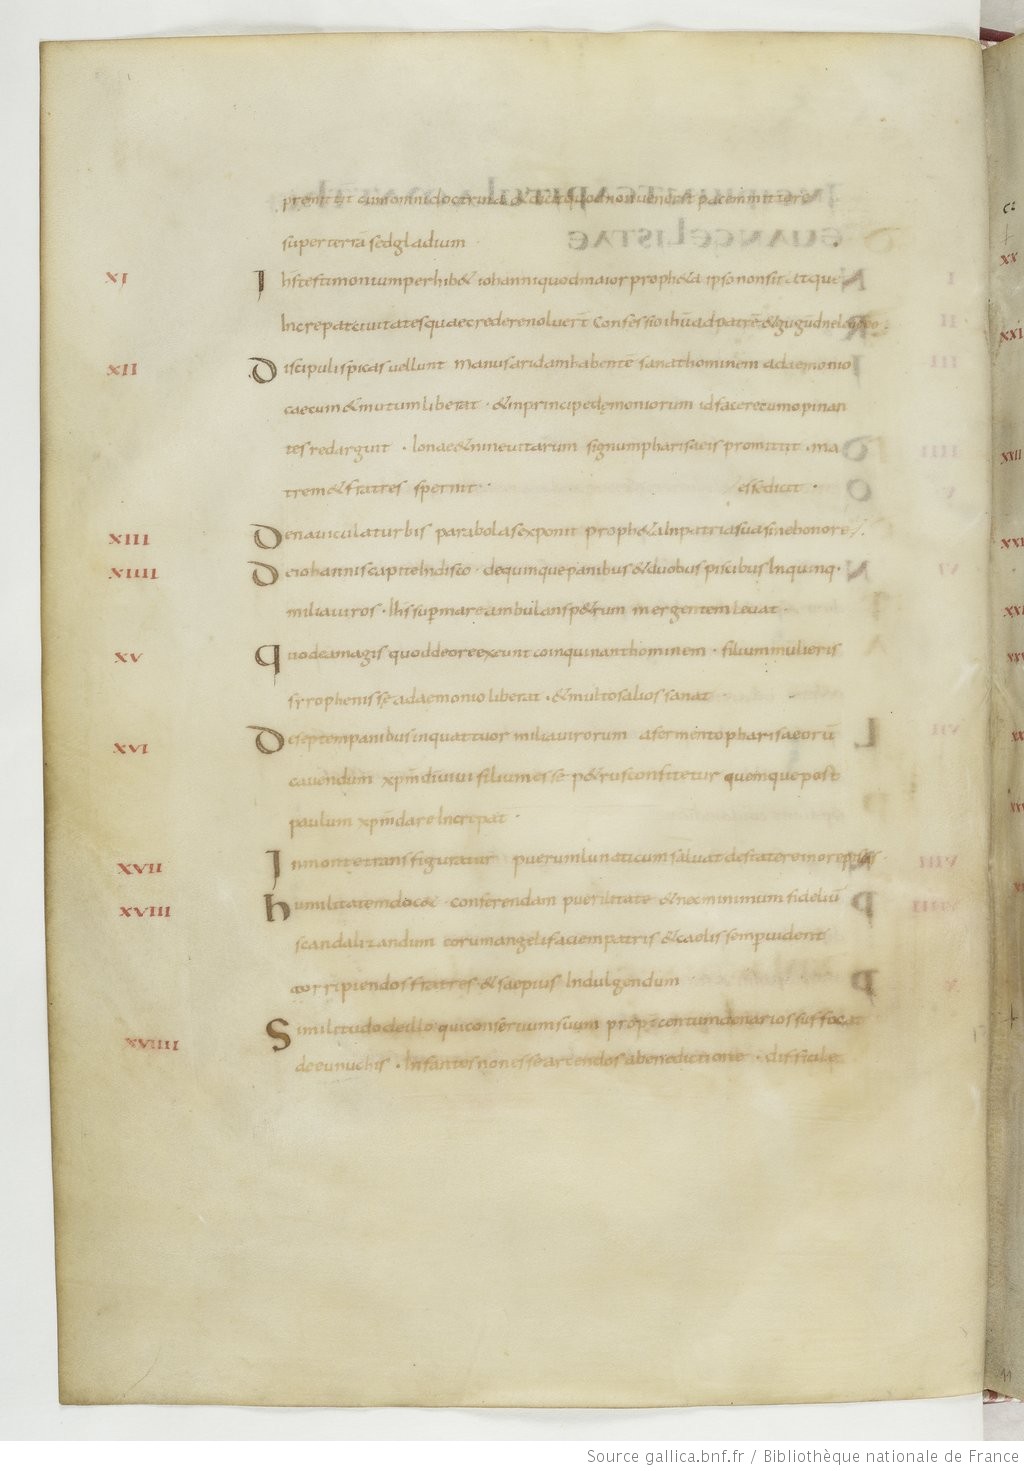 super terrā sed gladium
XI Ihs testimonium perhib& iohanni quod maior proph&a ipso non sit atque
Increpat ciuitates quae credere noluert̄ Confessio ihū ad patrē & iugū dn̄e
XII Discipuli spicas uellunt manus aridam habentē sanat hominem a daemonio
caecum & mutum liberat · & in principe dęmoniorum id facere eum opinan
tes redarguit · Ionae & nineuitarum signum pharisaeis promittit · ma
trem & fratres spernit · esse dicit ·
XIII De nauicula turbis parabolas exponit proph&a In patria sua sine honore
XIIII De iohannis capite In disco · de quinque panibus & duobus piscibus In quinq·
milia uiros · Ihs sup mare ambulans p&rum mergentem leuat ·
XV Quod ea magis quod de ore exeunt coinquinant hominem · filium mulieris
syrophenissę a daemonio liberat · & multos alios sanat
XVI De septem panibus in quattuor milia uirorum a fermento pharisaeorū
cauendum xp̄m dī uiui filium esse p&rus confitetur quemque post
paulum xp̄m dare Increpat ·
XVII In monte transfiguratur puerum lunaticum saluat de statere in ore piscis
XVIII humilitatem doc& · conferendam puerilitate & nec minimum fideliū
scandalizandum eorum angeli faciem patris & caelis semp uident
corripiendos fratres & saepius Indulgendum
XVIIII Similitudo de illo qui conseruum suum propt centum denarios suffocat
de eunuchis · Infantes non esse arcendos a benedictione · difficile
XX
XXI
XXII
Source gallica.bnf.fr / Bibliothèque nationale de France